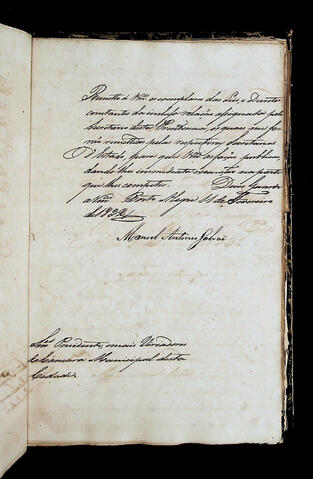 Remetto á Vmces os exemplares das Leis, e Decretos
constantes da inclusa relação assignada pelo
Secretario desta Presidencia, os quaes me forão
remettidos pelas respectivas Secretarias
d'Estado, para que Vmces os fação publicar,
dando lhes conveniente execução na parte
que lhes competir. Deos Guarde
a Vmces Porto Alegre 11 de Fevereiro
de 1832
Manoel Antonio Galvão
Snres Presidente, e mais Vereadores
da Camara Municipal desta
Cidade.